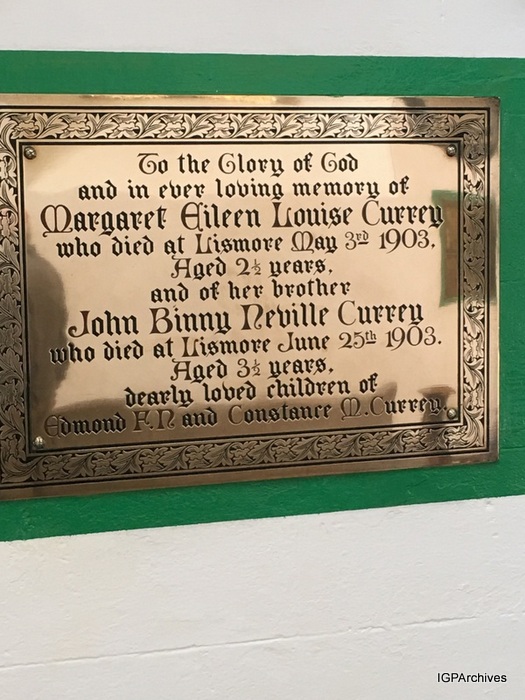 To the Glory of God
and in ever loving memory of
Margaret Eileen Louise Currey
who died at Lismore May 3rd 1903,
Aged 2½ years,
and of her brother
John Binny Neville Currey
who died at Lismore June 25th 1903.
Aged 3½ years,
dearly loved children of
Edmond F.N and Constance M.Currey.
IGPArchives